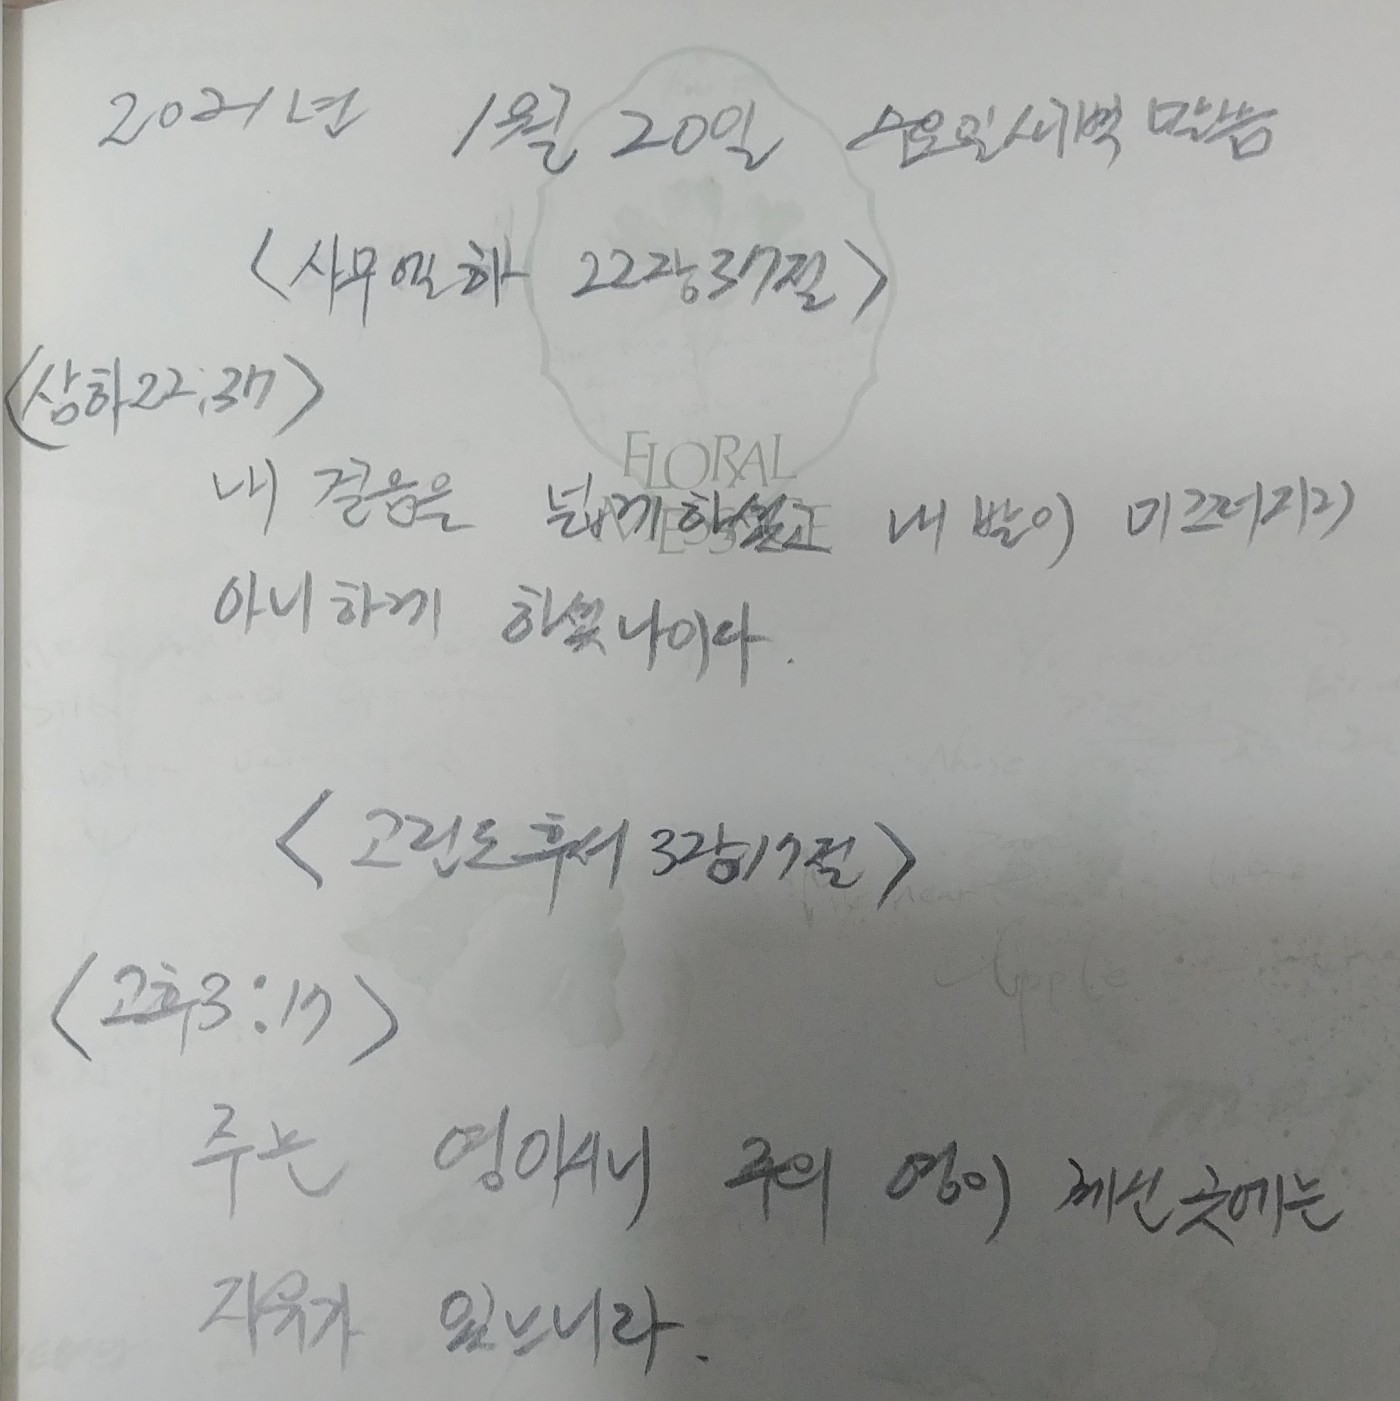 2021년 1월 20일 수요일새벽 말씀
<사무엘하 22장37절>
<삼하22:37>
FLORAL
내 걸음을 넓게하셨고 내 발이 미끄러지지
아니하게 하셨나이다.
<고린도후서 3장17절>
<고후3:17>
주는 영이시니 주의 영이 계신 곳에는
자유가 있느니라.